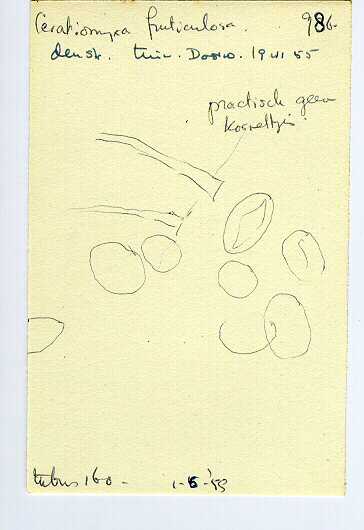 Ceratiomyxa fruticulosa. 986.
densk. Doorw. 19 VI 55
practisch geen
korreltjes
tubus 160 - 1-6-'58